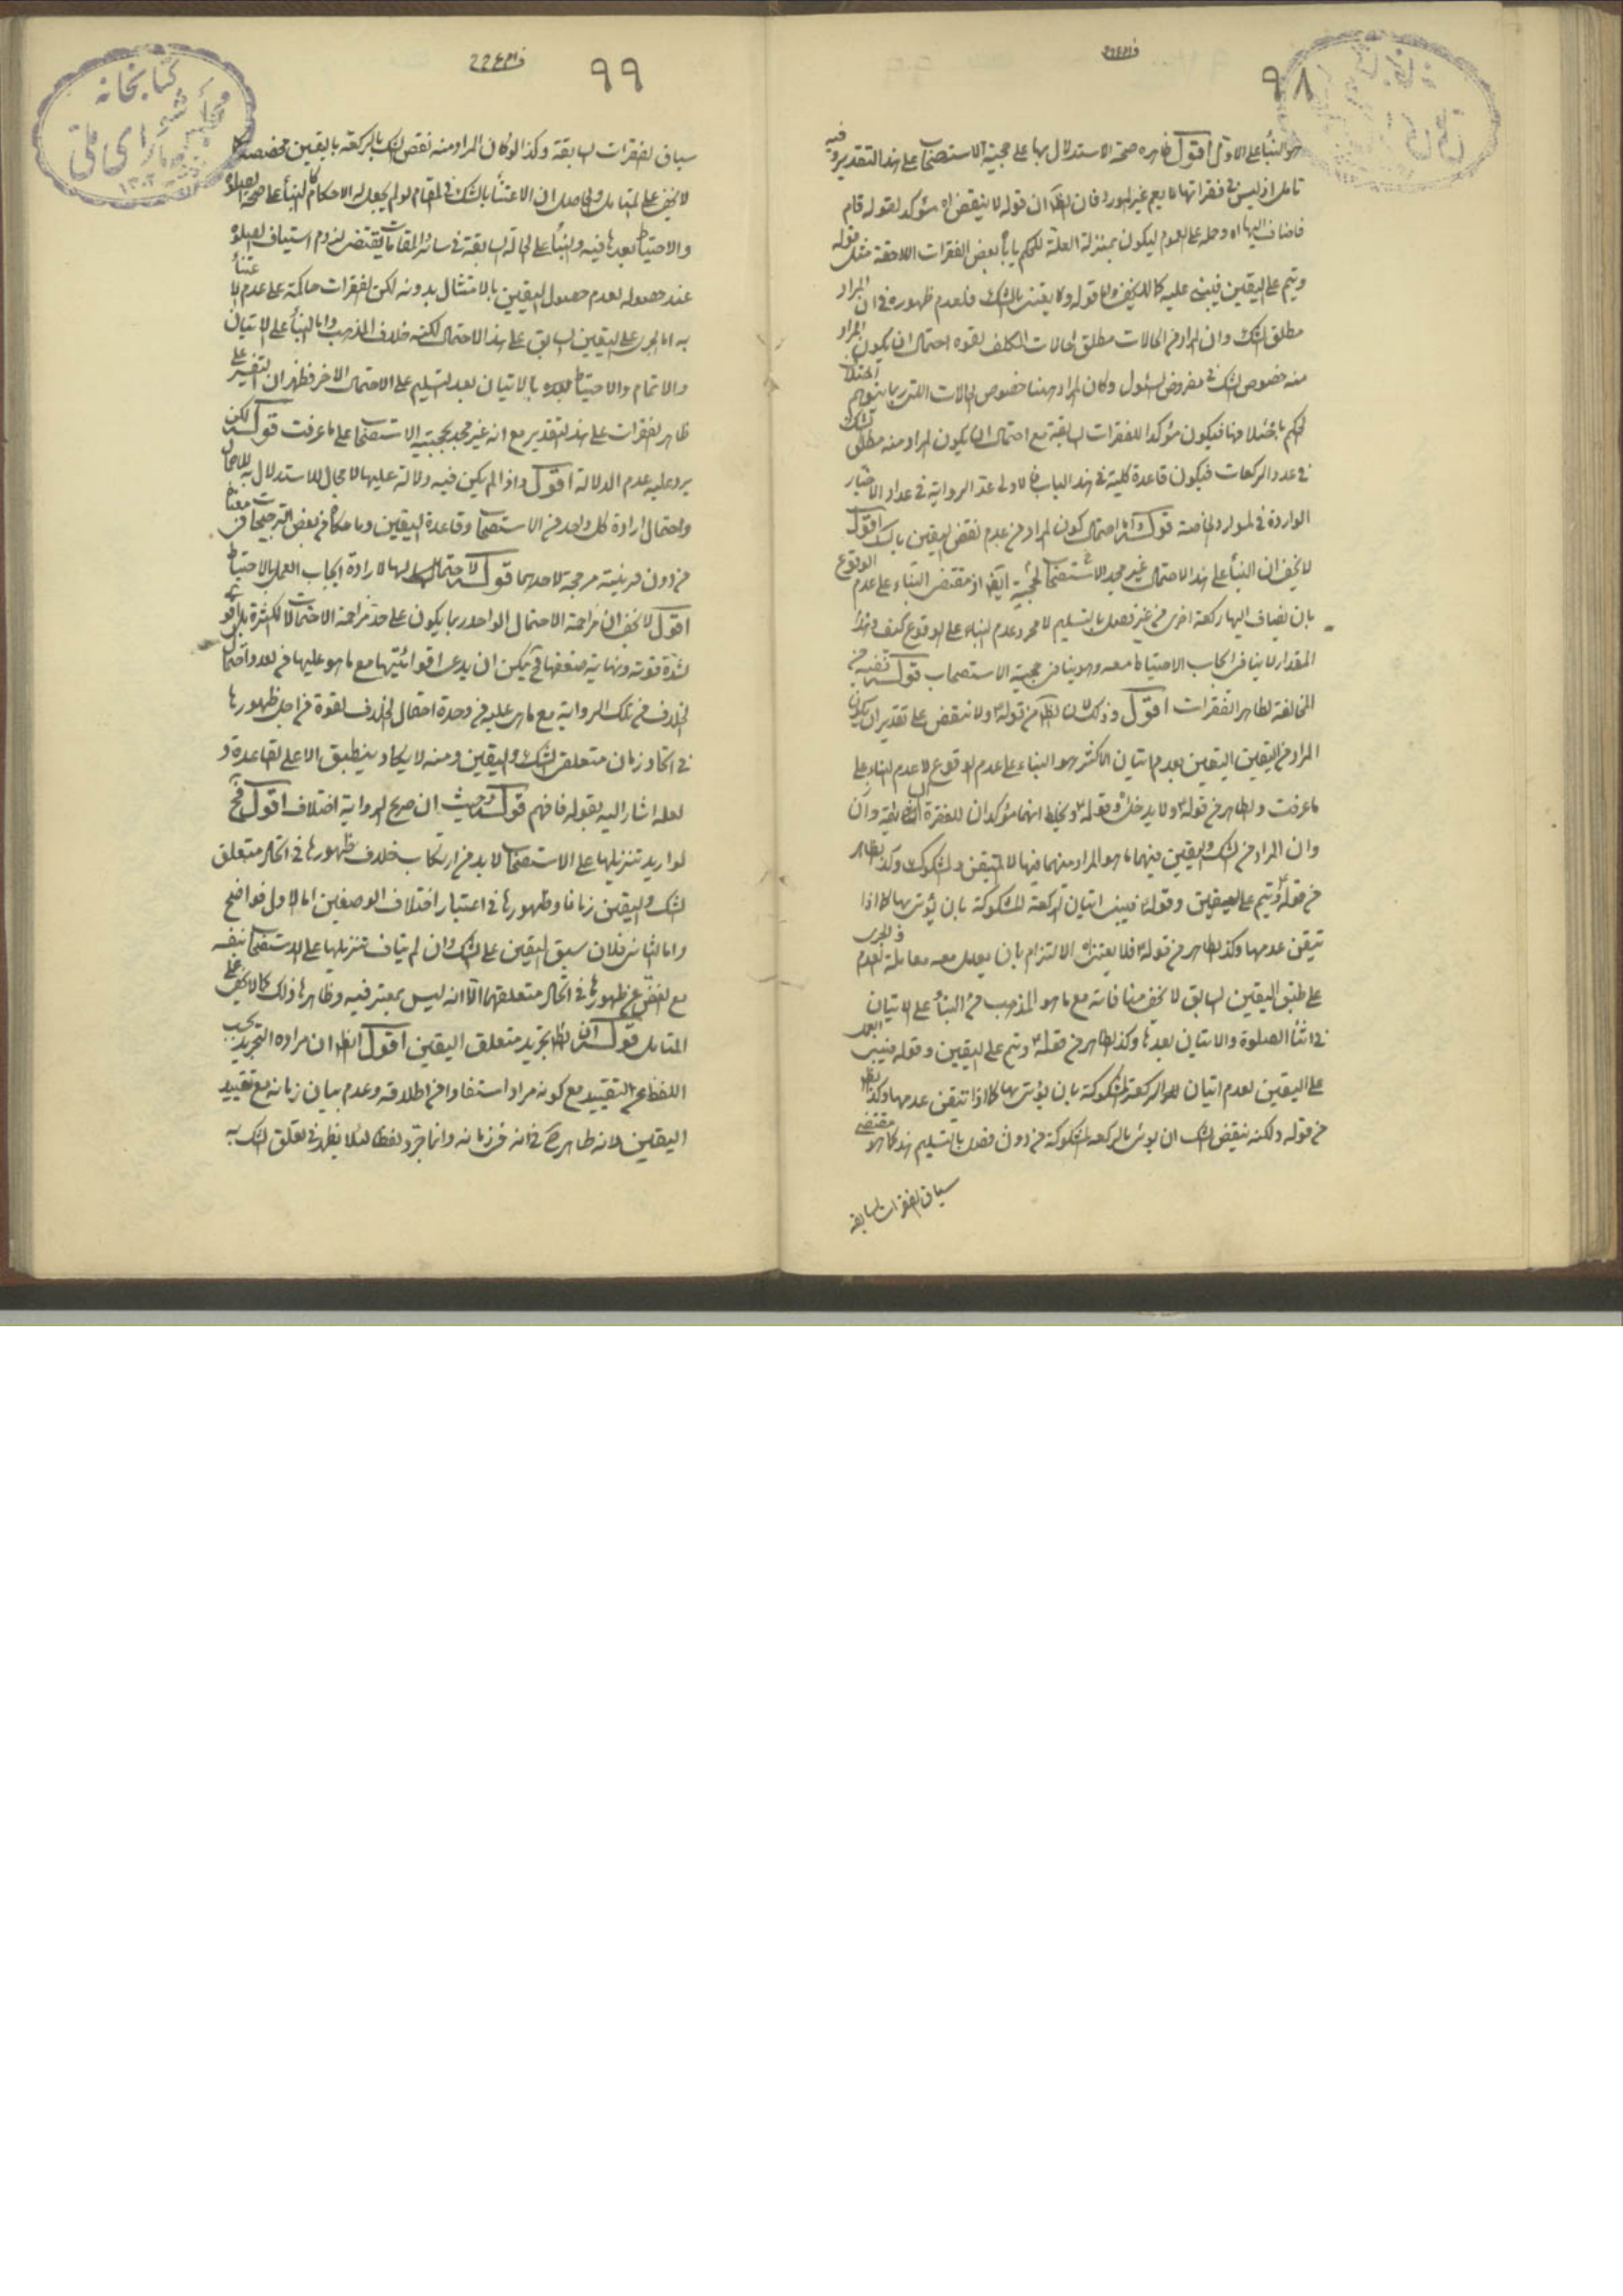 ٩٨
هو البناء على الاولى اقول ظاهره صحة الاستدلال بها على حجية الاستصحاب على هذا التقدير وفيه
تامل اذ ليس في فقراتها ما يعم غير المورد فان الظ ان قوله لا ينقض اه مؤكد لقوله قام
فاضاف اليها اه وحمله على العموم ليكون بمنزلة العلة للحكم يأباه بعض الفقرات اللاحقة مثل قوله
ويتم على اليقين فيبنى عليه كما لا يخفى واما قوله ولا يعتد بالشك فلعدم ظهوره في ان المراد
مطلق الشك وان المراد من الحالات مطلق حالات المكلف لقوه احتمال ان يكون المراد
منه خصوص الشك في مفروض السئول وكان المراد هنا خصوص الحالات التي ربما يتوهم اختلاف
الحكم باختلافها فيكون مؤكدا للفقرات السابقة مع احتمال ان يكون المراد منه مطلق الشك
في عدد الركعات فيكون قاعدة كلية في هذا الباب فالاولى عد الرواية في عداد الاخبار
الواردة في الموارد الخاصة قوله واما احتمال كون المراد من عدم نقض اليقين بالشك اقول
لا يخفى ان البناء على هذا الاحتمال غير مجد لاستصحاب الحجية ايضا اذ مقتضى البناء على عدم الوقوع
بان يضاف اليها ركعة اخرى من غير فصل بالتسليم لا مجرد عدم البناء على الوقوع كيف وهذا
المقدار لا ينافى ايجاب الاحتياط معه وهو ينافى حجية الاستصحاب قوله ففيه من
المخالفة لظاهر الفقرات اقول وذلك لان الظ من قوله ولا ينقض على تقدير ان يكون
المراد من اليقين اليقين بعدم اتيان الاكثر هو البناء على عدم الوقوع لا عدم البناء على
ما عرفت والظاهر من قوله ولا يدخل وقوله ولا يخلط انهما مؤكدان للفقرة السابقة وان
وان المراد من الشك واليقين فيهما ما هو المراد منهما فيها لا المتيقن والمشكوك وكذا الظاهر
من قوله ويتم على اليقين وقوله فيبنى اتيان الركعة المشكوكة بان يؤتى بها كما اذا
تيقن عدمها وكذا الظاهر من قوله فلا يعتد اه الالتزام بان يعمل معه معاملة العدم والجرى
على طبق اليقين السابق لا يخفى منافاته مع ما هو المذهب من البناء على الاتيان
في اثناء الصلوة والاتيان بعدها وكذا الظاهر من قوله ويتم على اليقين وقوله فيبنى
على اليقين بعدم اتيان الركعة المشكوكة بان يؤتى بها كما اذا تيقن عدمها وكذا الظ
من قوله ولكنه ينقض الشك ان يؤتى بالركعة المشكوكة من دون فصل بالتسليم هذا كما هو مقتضى
سياق الفقرات السابقه
٩٩
سياق الفقرات السابقة وكذا لو كان المراد منه نقض الشك بالركعة باليقين
لا يخفى على المتامل والحاصل ان الاعتناء بالشك في المقام لو لم يجعل له الاحكام كالبناء على صحة الصلوة
والاحتياط بعدها فيه والبناء على الحالة السابقة في سائر المقامات يقتضى لزوم استيناف الصلوة
عند حصوله لعدم حصول اليقين بالامتثال بدونه لكن الفقرات حاكمة على عدم الاعتناء
به اما الجرى على اليقين السابق على هذا الاحتمال لكنه خلاف المذهب واما البناء على الاتيان
والاتمام والاحتياط بعده بالاتيان بعد التسليم على الاحتمال الاخر فظهر ان التفسير على
ظاهر الفقرات على هذا التقدير مع انه غير مجد لحجية الاستصحاب على ما عرفت قوله لكن
يرد عليه عدم الدلالة اقول واذا لم يكن فيه دلالة عليها لا مجال للاستدلال به للاجمال
واحتمال ارادة كل واحد من الاستصحاب وقاعدة اليقين وما حكاه من بعض الترجيحات
من دون قرينة مرجحة لاحدهما قوله لاحتمالها لارادة ايجاب العمل بالاحتياط
اقول لا يخفى ان مزاحمة الاحتمال الواحد ربما يكون على حد مزاحمة الاحتمالات الكثرة بل اقوى
لشدة قوته ونهاية ضعفها فح يمكن ان يدعى اقوائيتها مع ما هو عليها من تعدد احتمال
الخلاف من تلك الرواية مع ما هى عليه من وحدة احتمال الخلاف لقوة من اجل ظهورها
في اتحاد زمان متعلق الشك واليقين ومنه لا يكاد ينطبق الا على القاعدة و
لعله اشار اليه بقوله فافهم قوله وحيث ان صريح الرواية اختلاف اقول فح
لو اريد تنزيلها على الاستصحاب لا بد من ارتكاب خلاف ظهورها في اتحاد متعلق
الشك واليقين زمانا وظهورها في اعتبار اختلاف الوصفين اما الاول فواضح
واما الثانى فلان سبق اليقين على الشك وان لم يناف تنزيلها على الاستصحاب بنفسه
مع الغض عن ظهورها في اتحاد متعلقهما الا انه ليس بمعتبر فيه وظاهرها ذلك كما لا يخفى على
المتامل قوله ان الظ تجريد متعلق اليقين اقول الظ ان مراده التجريد بحسب
اللفظ عن التقييد مع كونه مرادا استفادا من اطلاقه وعدم بيان زمانه مع تقييد
اليقين لانه ظاهر ح في انه في زمانه وانما جرد لفظا لئلا يظهر في تعلق الشك به
كتابخانه
مجلس شورای ملی